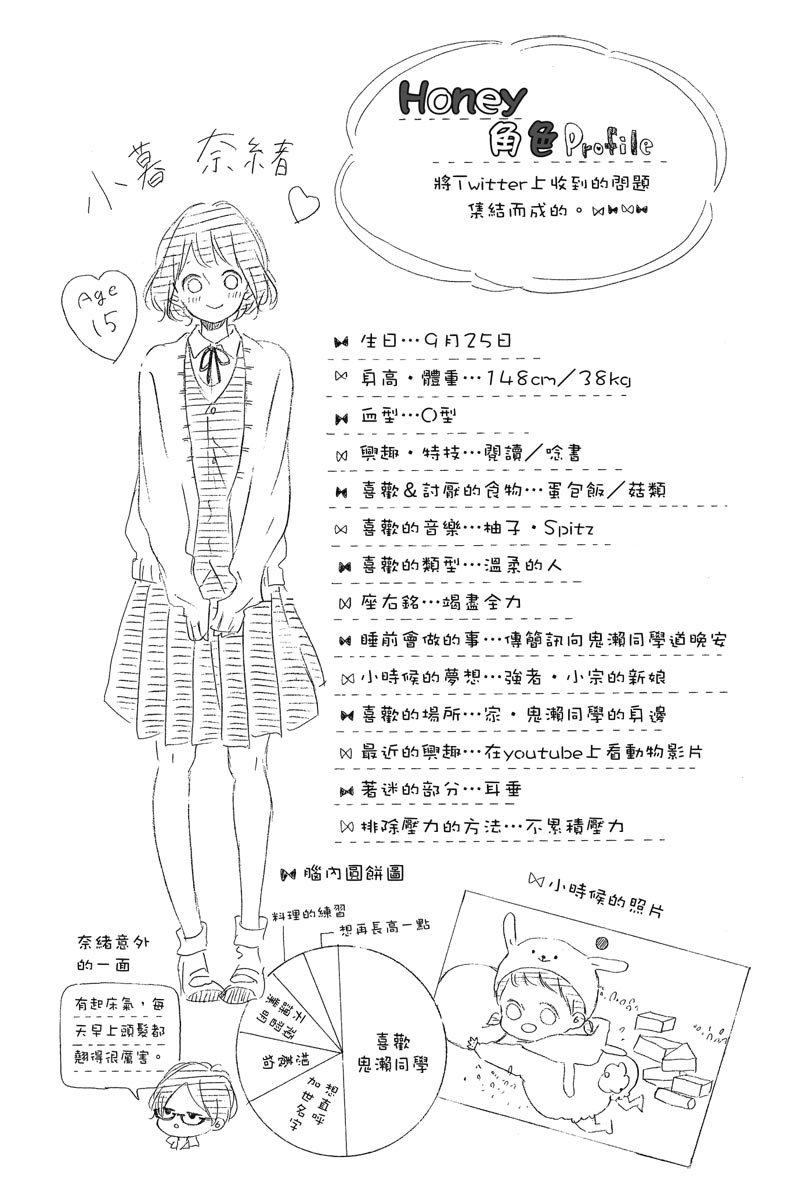 Honey
角色Profile
將Twitter上收到的問題
集結而成的。
小暮 奈緒
Age
15
生日…9月25日
身高・體重…148cm／38kg
血型…O型
興趣・特技…閱讀／唸書
喜歡＆討厭的食物…蛋包飯／菇類
喜歡的音樂…柚子・Spitz
喜歡的類型…溫柔的人
座右銘…竭盡全力
睡前會做的事…傳簡訊向鬼瀨同學道晚安
小時候的夢想…強者・小宗的新娘
喜歡的場所…家・鬼瀨同學的身邊
最近的興趣…在youtube上看動物影片
著迷的部分…耳垂
排除壓力的方法…不累積壓力
腦內圓餅圖
料理的練習
想再長高一點
預習明
天課業
想直呼
加世名字
喜歡
鬼瀨同學
小時候的照片
奈緒意外
的一面
有起床氣，每
天早上頭髮都
翹得很厲害。